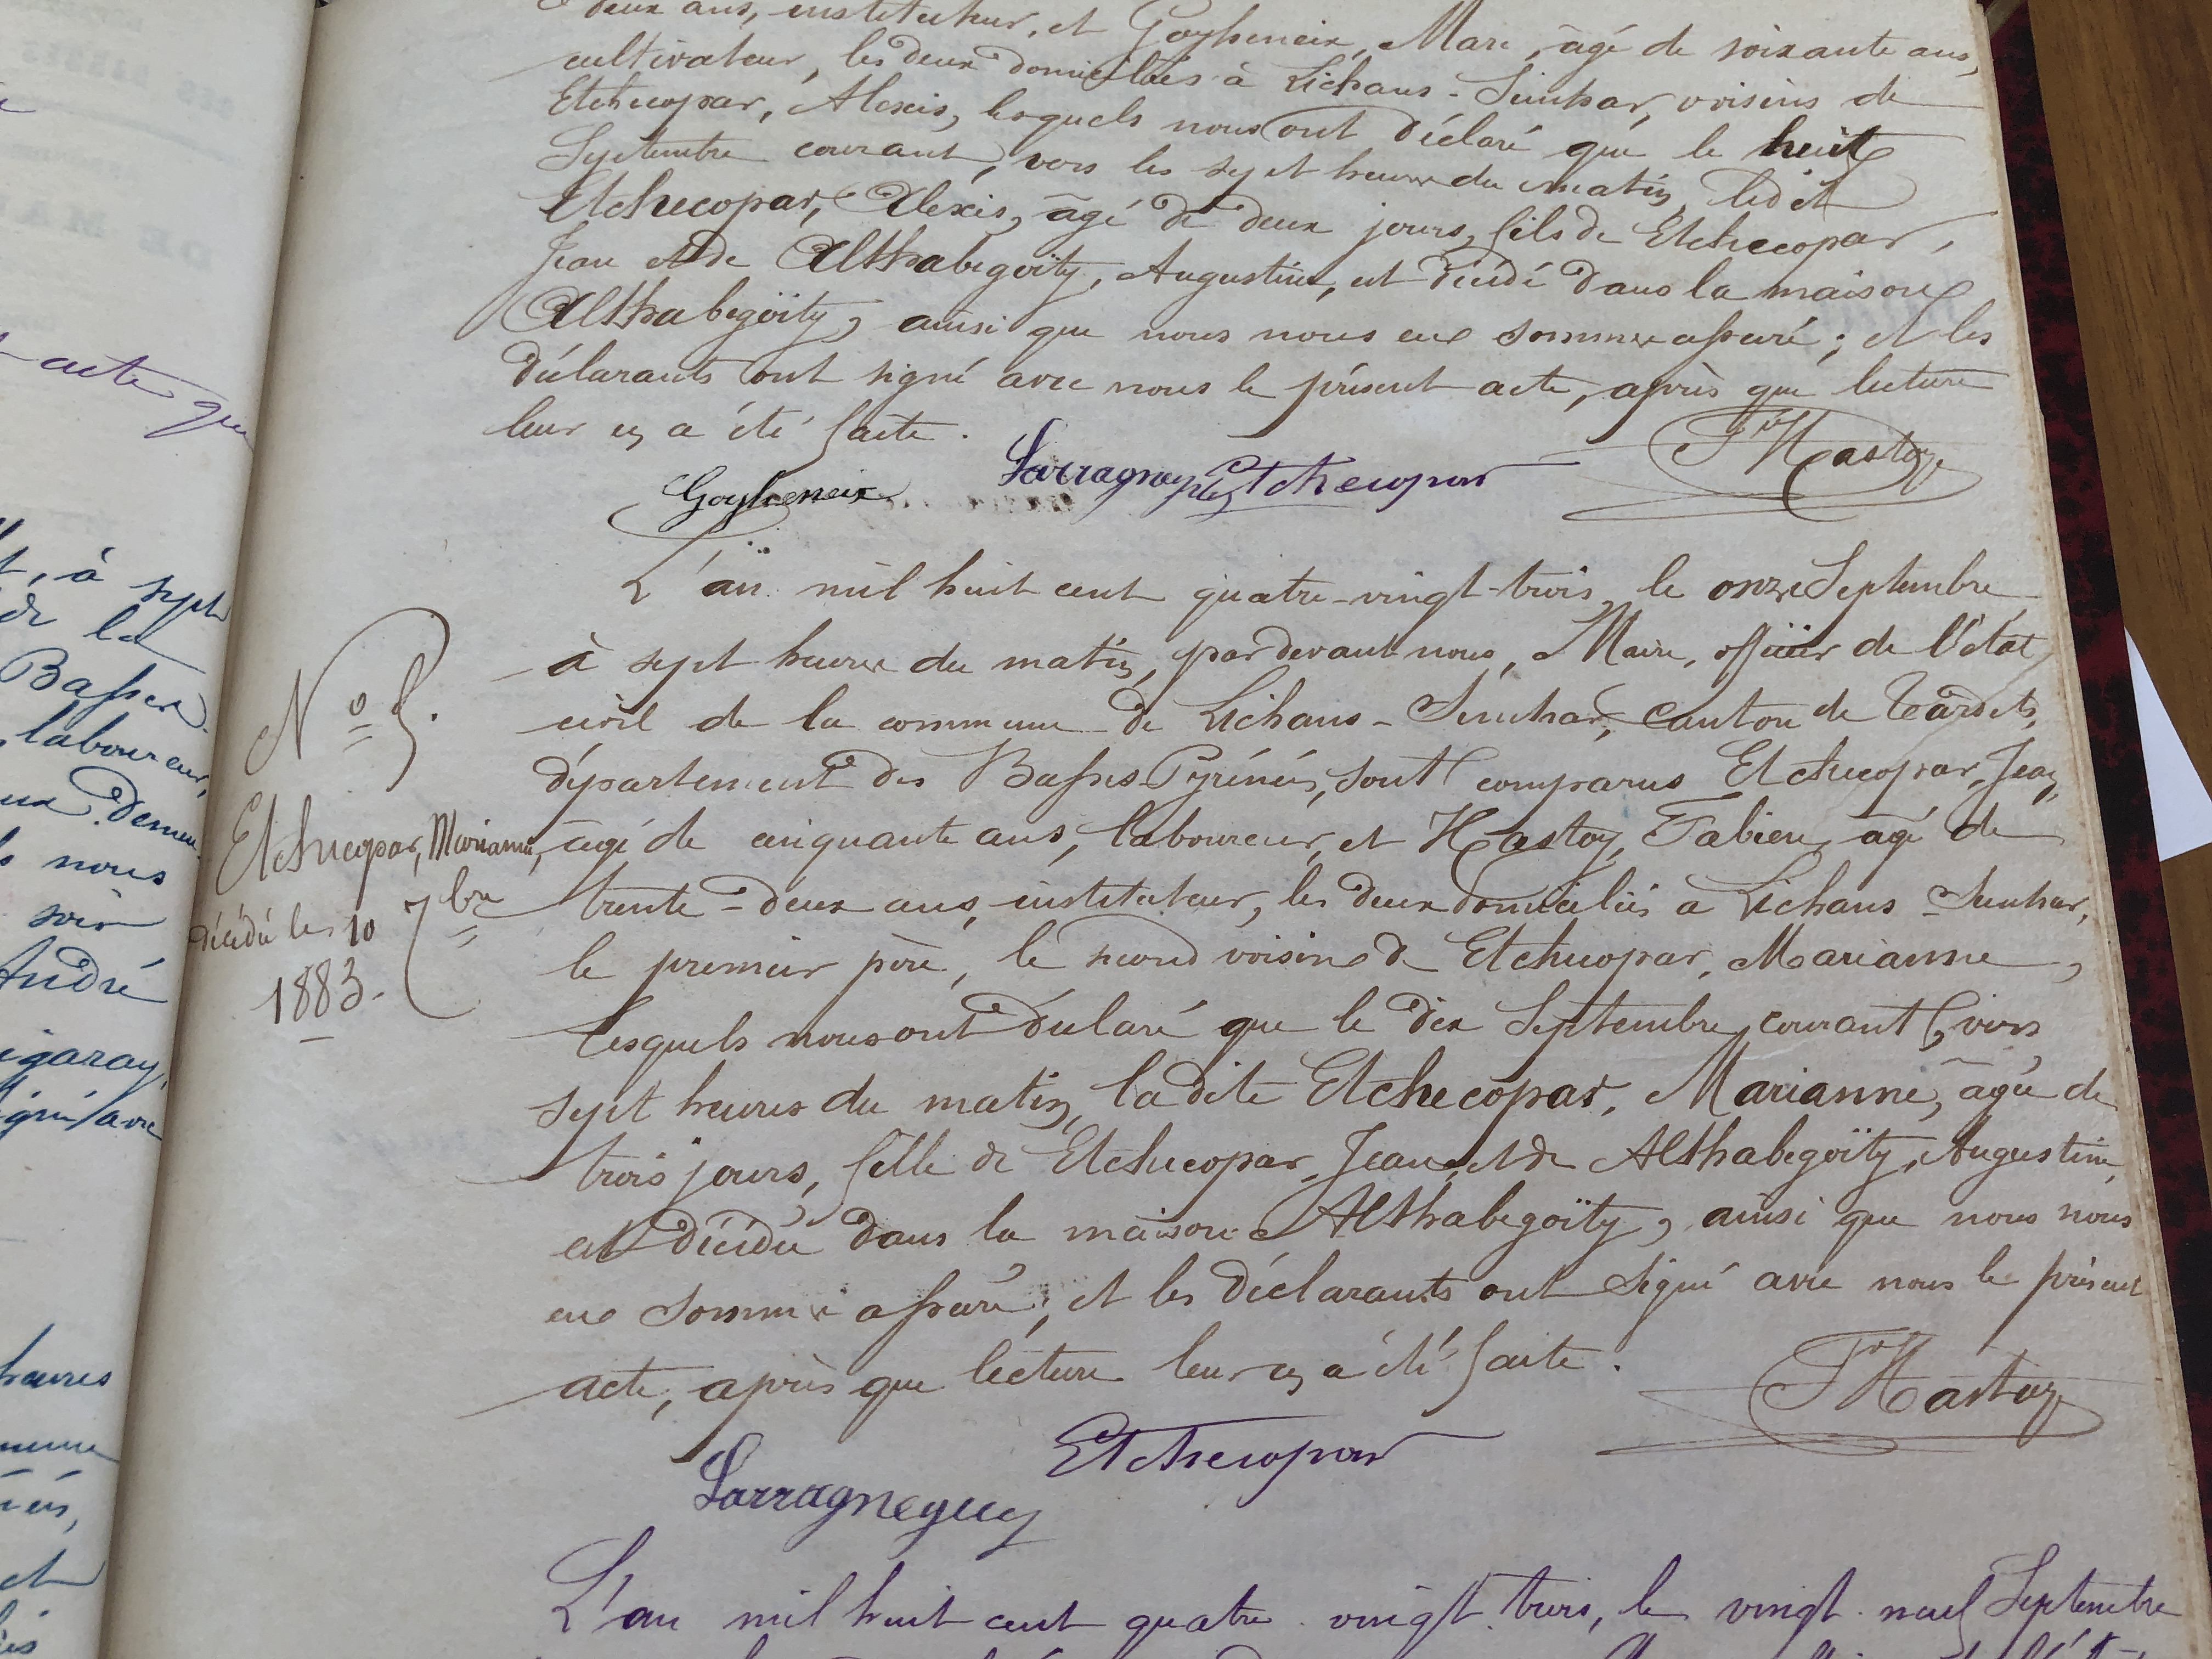 deux ans, instituteur, et Goyheneix, Marc, âgé de soixante ans,
cultivateur, les deux domiciliés à Lichans-Sunhar, voisins de
Etchecopar, Alexis, lesquels nous ont déclaré que le huit
Septembre courant, vers les sept heures du matin, ledit
Etchecopar, Alexis, âgé de deux jours, fils de Etchecopar,
Jean et de Althabegoïty, Augustine, est décédé dans la maison
Althabegoïty, ainsi que nous nous en sommes assuré; et les
déclarants ont signé avec nous le présent acte, après que lecture
leur en a été faite.
Goyheneix
Larragneguy
Etchecopar
F. Hastoy
L'an mil huit cent quatre-vingt-trois, le onze Septembre
à sept heures du matin, par devant nous, Maire, officier de l'état
civil de la commune de Lichans-Sunhar, canton de Tardets,
département des Basses-Pyrénées, sont comparus Etchecopar, Jean,
âgé de cinquante ans, laboureur, et Hastoy, Fabien, âgé de
trente-deux ans, instituteur, les deux domiciliés à Lichans-Sunhar,
le premier père, le second voisin de Etchecopar, Marianne,
lesquels nous ont déclaré que le dix Septembre courant, vers
sept heures du matin, la dite Etchecopar, Marianne, âgée de
trois jours, fille de Etchecopar, Jean, et de Althabegoïty, Augustine,
est décédée dans la maison Althabegoïty, ainsi que nous nous
en sommes assuré, et les déclarants ont signé avec nous le présent
acte, après que lecture leur en a été faite.
F. Hastoy
Etchecopar
Larragneguy
N° 5.
Etchecopar, Marianne,
décédée le 10 7bre
1883.
L'an mil huit cent quatre-vingt-trois, le vingt-neuf Septembre
acte que
, à sept
de la
Basses
laboureur,
nous
soir
André
igaray,
signé avec
heures
et